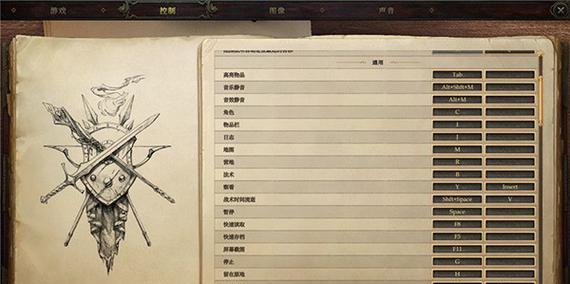 游戏
控制
图像
声音
通用
高亮物品 Tab
音乐静音 Alt+Shft+M
音效静音 Alt+M
角色 C
物品栏 I
日志 J
地图 M
营地 R
法术 B
察看 Y Insert
战术时间流逝 Shft+Space V
暂停 Space
快速读取 F8
快速存档 F5
屏幕截图 F11
停止 G
留在原地 H